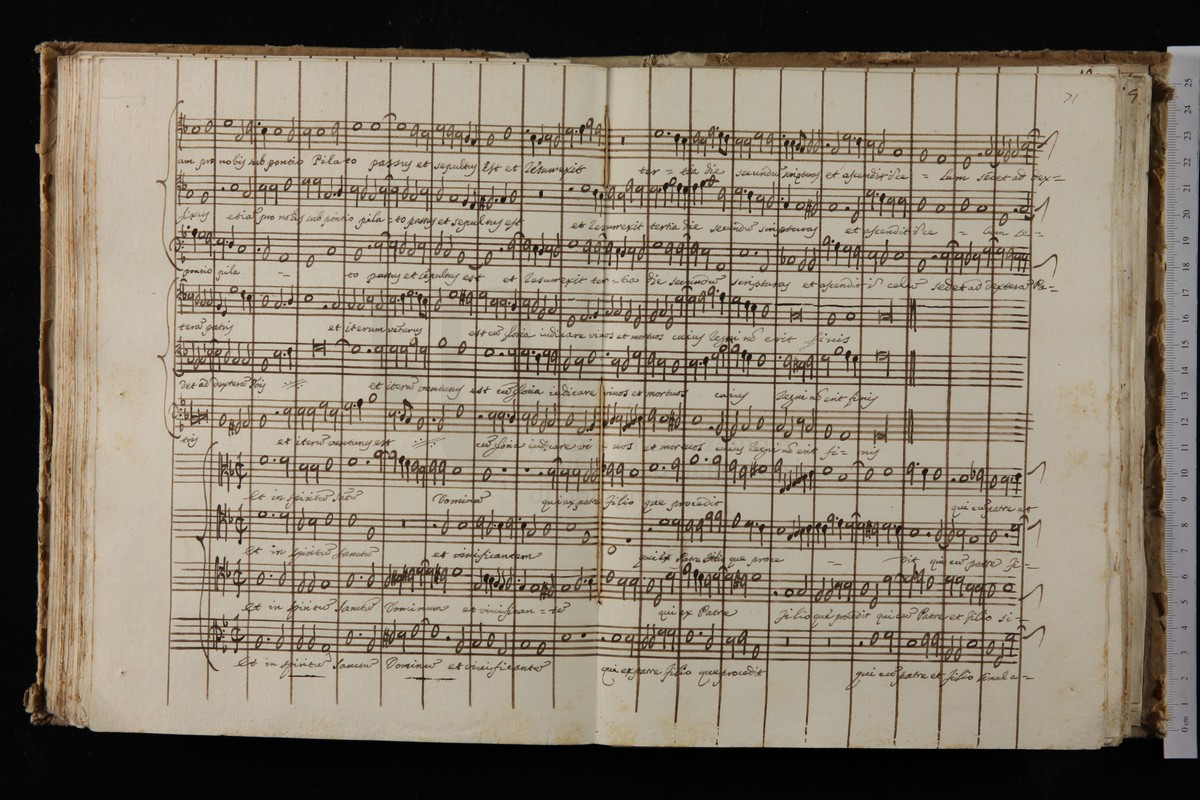 71
am pro nobis sub pontio Pilato passus et sepultus est et Resurrexit ter = tia die secundũ scripturas et ascendit ĩ ce = lum sedet ad dex =
fixus etiã pro nobis sub pontio pila = to passus et sepultus est et Resurrexit tertia die secundũ scripturas et ascendit ĩ ce = lum se =
pontio pila = to passus et sepultus est et Resurrexit ter = tia die secundũ scripturas et ascendit ĩ celũ sedet ad dexterã Pa =
terã patris et iterum venturus est cũ gloria iudicare vivos et mortuos cuius Regni nõ erit finis
det ad dexterã et iterũ venturus est cũ gloria iudicare vivos et mortuos cuius Regni nõ erit finis
tris et iterũ venturus est cũ gloria iudicare vi vos et mortuos cuius Regni nõ erit fi = nis
Et in spiritũ Dominũ qui ex patre Filio que procedit qui cũ patre et
Et in spiritũ Sanctũ et vivificantem qui ex Patre Filio que proce = dit qui cũ patre Fi =
Et in spiritũ Sanctũ Dominum et vivifican = tẽ qui ex Patre Filio que procedit qui cũ Patre et Filio si =
Et in spiritũ Sanctũ Dominũ et vivificantẽ qui ex patre Filio que procedit qui cũ patre et Filio simul a =